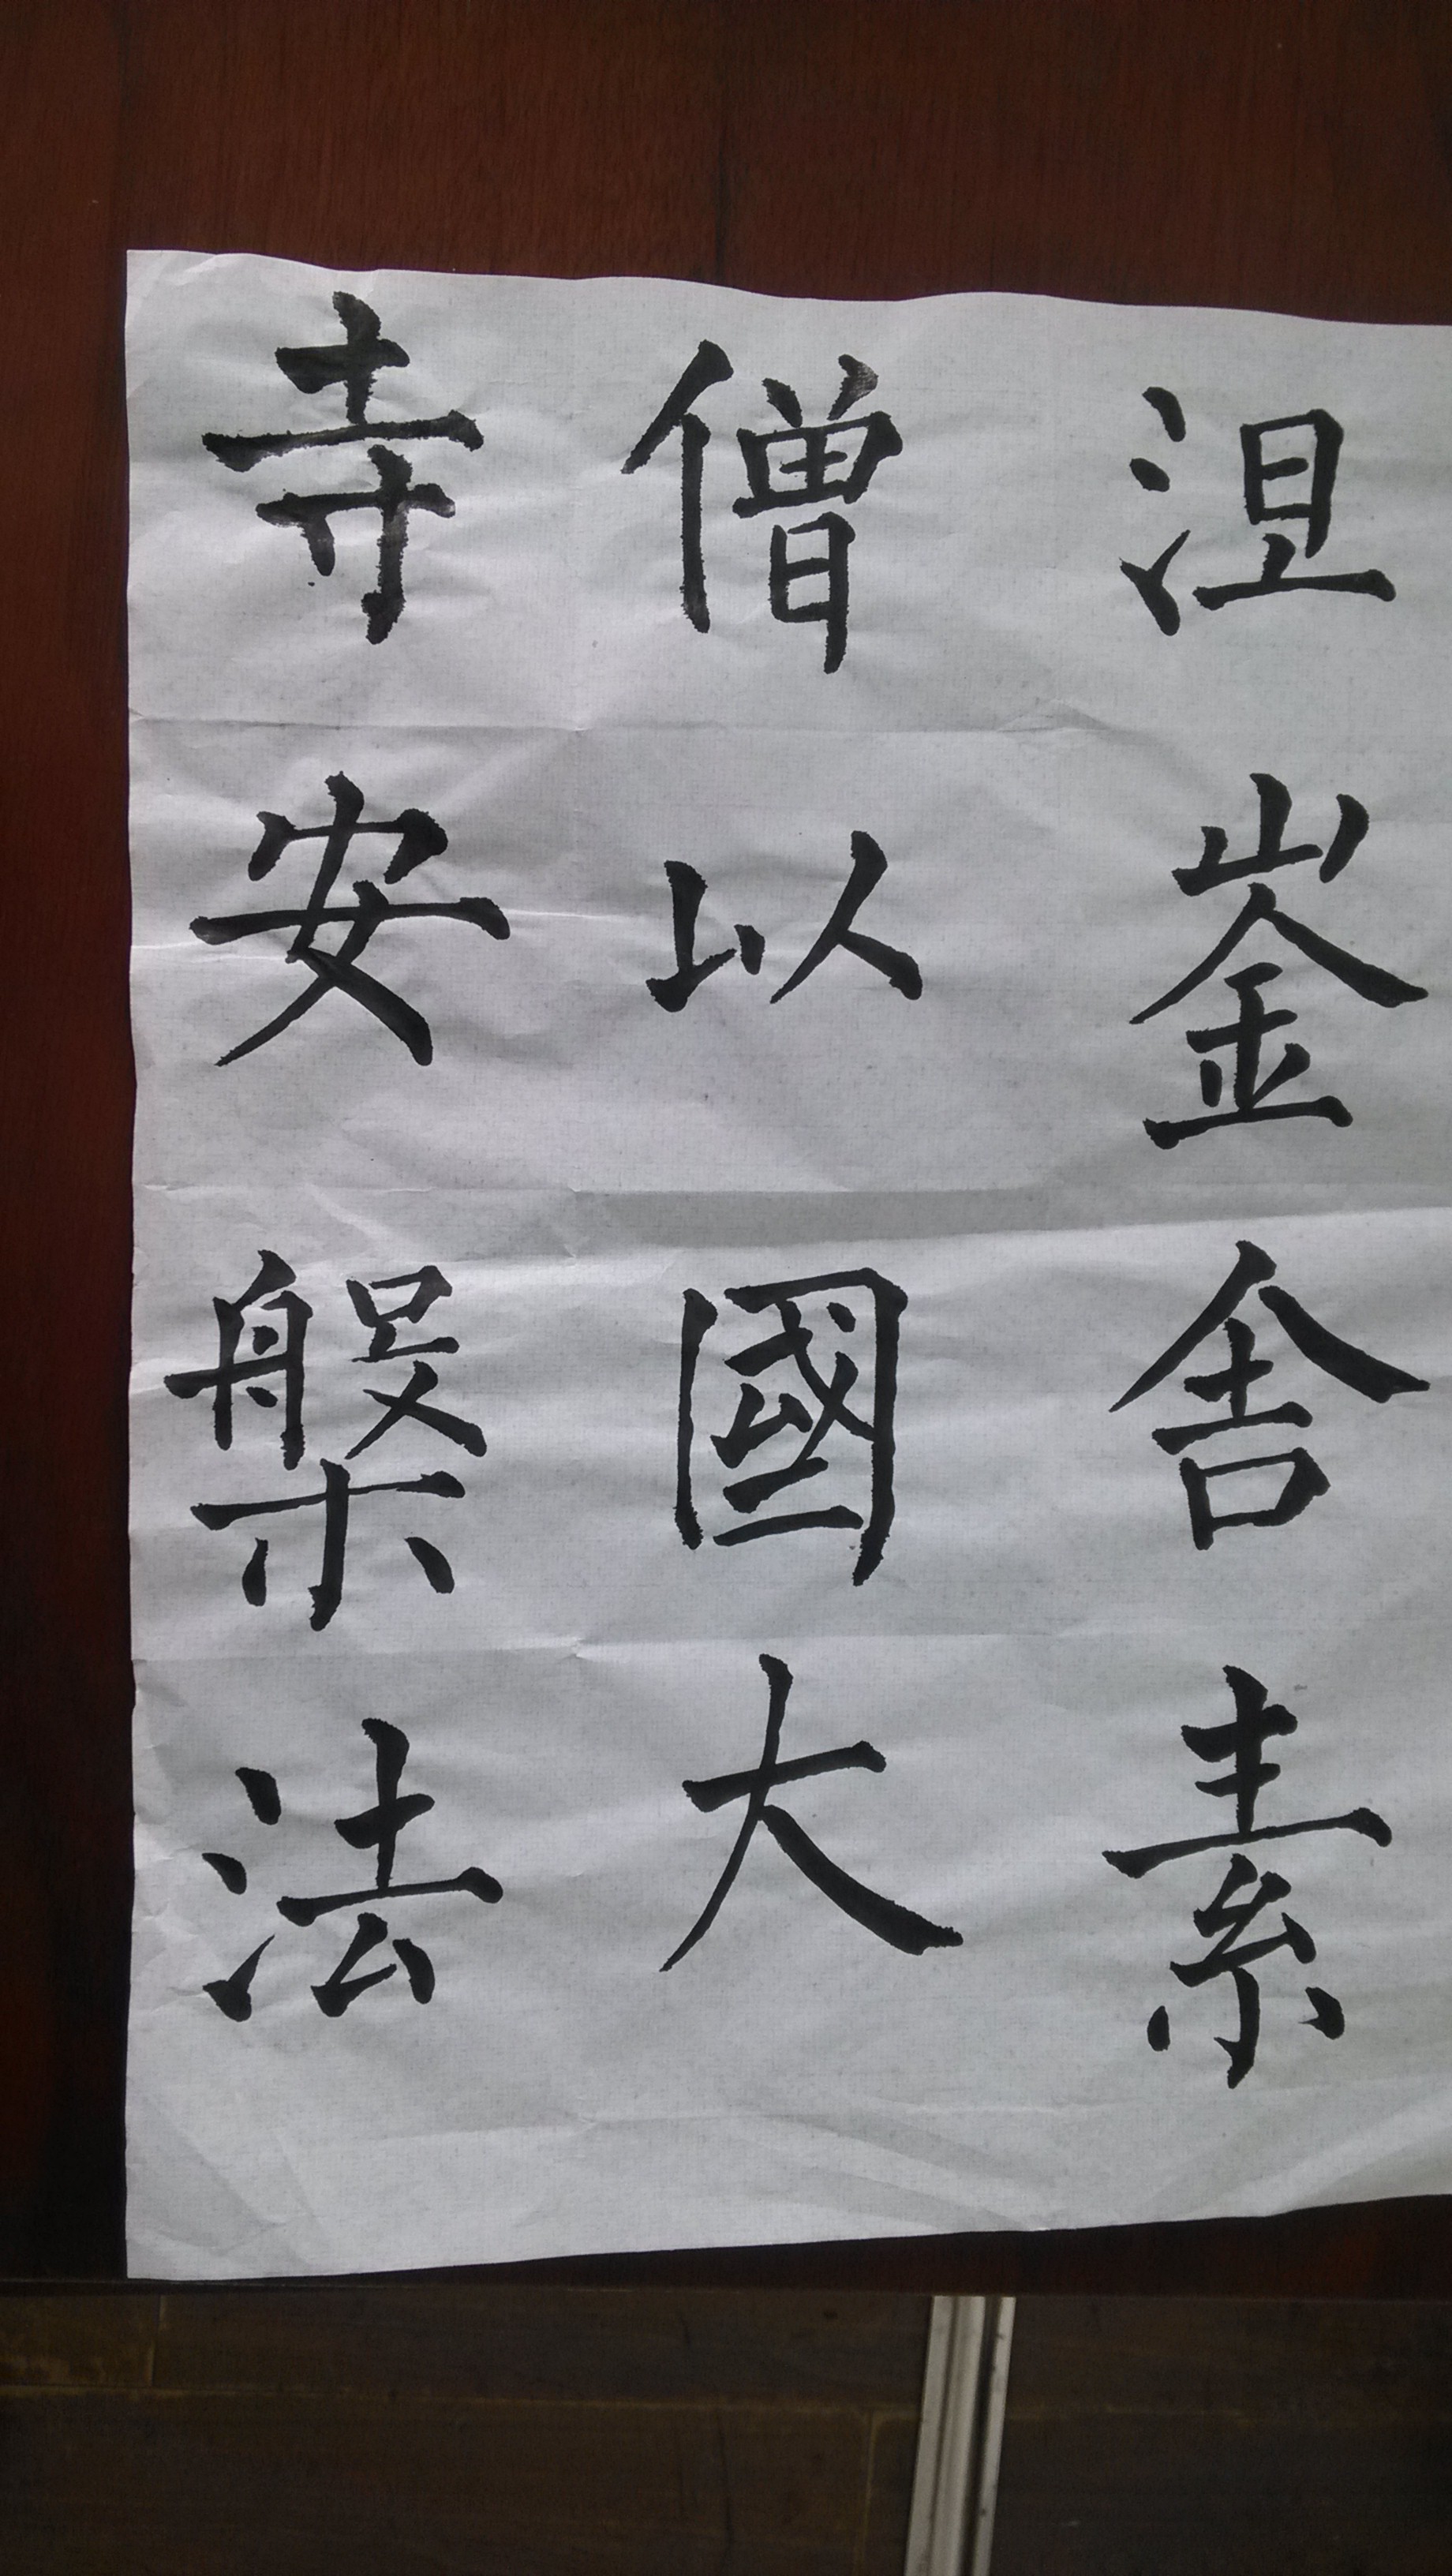 涅崟舍素
僧以國大
寺安槃法